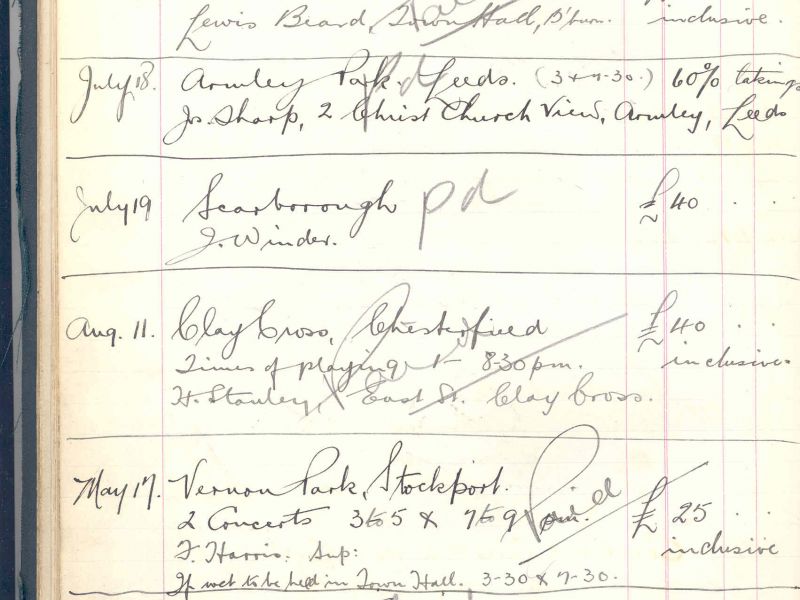 Lewis Beard, Town Hall, B'burn. inclusive.
July 18. Armley Park, Leeds. (3 & 7-30.) 60% takings
Pd
Js. Sharp, 2 Christ Church View, Armley, Leeds
July 19 Scarborough pd £40 . .
J. Winder.
Aug. 11. Clay Cross, Chesterfield £40 . .
Times of playing 8-30 pm. inclusive.
Paid
H. Stanley, East St. Clay Cross.
May 17. Vernon Park, Stockport.
2 Concerts 3 to 5 & 7 to 9 pm. Paid £25 . .
F. Harris. Sup: inclusive
If wet to be held in Town Hall. 3-30 & 7-30.